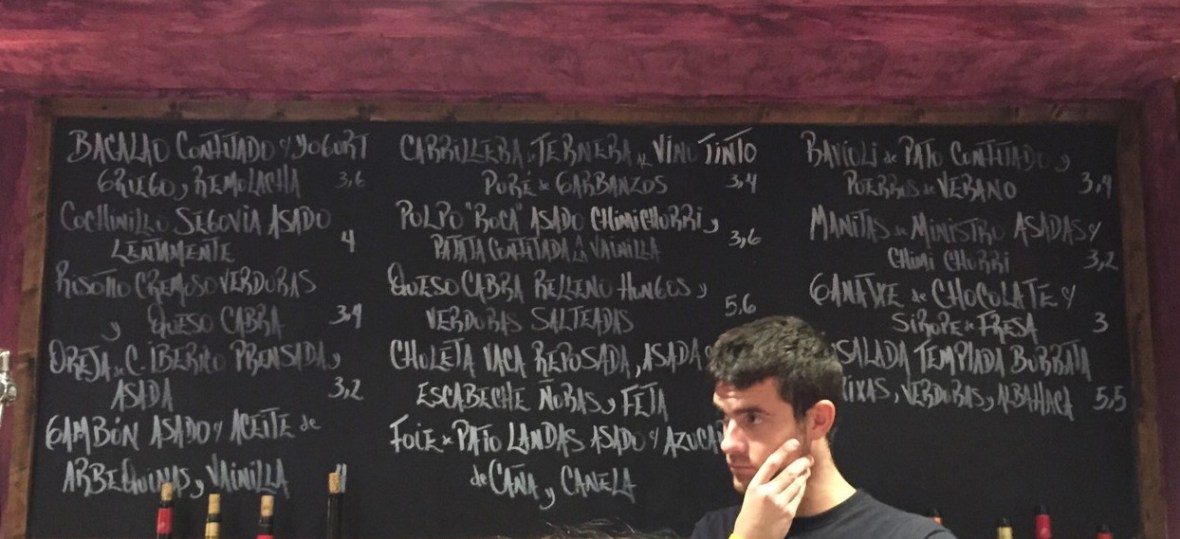 BACALAO CONFITADO Y YOGURT
GRIEGO Y REMOLACHA 3,6
COCHINILLO SEGOVIA ASADO
LENTAMENTE 4
RISOTTO CREMOSO VERDURAS
Y QUESO CABRA 3,4
OREJA DE C. IBERICO PRENSADA Y
ASADA 3,2
GAMBÓN ASADO Y ACEITE de
ARBEQUINAS Y VAINILLA
CARRILLERA DE TERNERA AL VINO TINTO
PURÉ de GARBANZOS 3,4
POLPO "ROCA" ASADO CHIMICHURRI Y
PATATA CONFITADA A LA VAINILLA 3,6
QUESO CABRA RELLENO HONGOS Y
VERDURAS SALTEADAS 5,6
CHULETA VACA REPOSADA, ASADA
ESCABECHE ÑORAS Y FETA
FOIE de PATO LANDAS ASADO Y AZUCA
de CAÑA Y CANELA
RAVIOLI de PATO CONFITADO Y
PUERROS de VERANO 3,4
MANITAS de MINISTRO ASADAS Y
CHIMI CHURRI 3,2
GANATXE de CHOCOLATE Y
SIROPE de FRESA 3
SALADA TEMPLADA BURRATA
IXAS, VERDURAS Y ALBAHACA 5,5